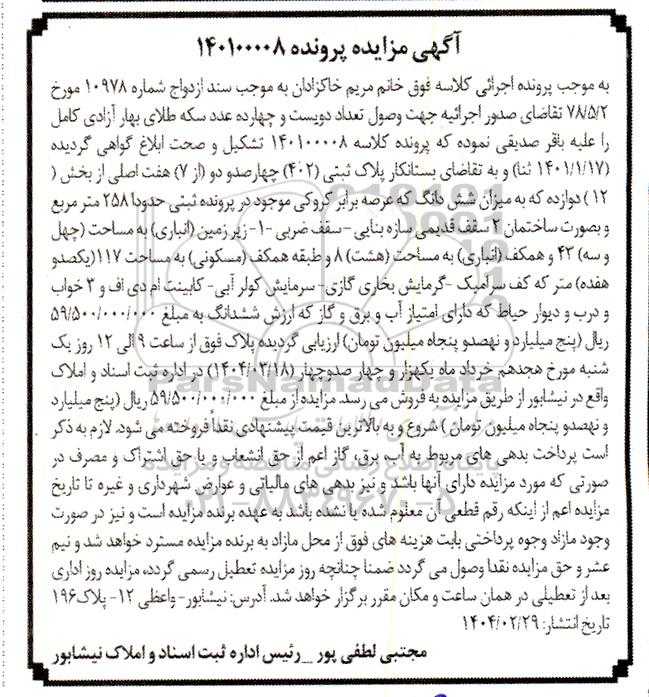 آگهی مزایده پرونده ۱۴۰۱۰۰۰۰۸
به موجب پرونده اجرائی کلاسه فوق خانم مریم خاکزادان به موجب سند ازدواج شماره ۱۰۹۷۸ مورخ
۷۸/۵/۲ تقاضای صدور اجرائیه جهت وصول تعداد دویست و چهارده عدد سکه طلای بهار آزادی کامل
را علیه باقر صدیقی نموده که پرونده کلاسه ۱۴۰۱۰۰۰۰۸ تشکیل و صحت ابلاغ گواهی گردیده
(۱۴۰۱/۱/۱۷ ثنا) و به تقاضای بستانکار پلاک ثبتی (۴۰۲) چهارصدو دو (از ۷) هفت اصلی از بخش (
۱۲ ) دوازده که به میزان شش دانگ که عرصه برابر کروکی موجود در پرونده ثبتی حدودا ۲۵۸ متر مربع
و بصورت ساختمان ۲ سقف قدیمی سازه بنایی -سقف ضربی -۱- زیر زمین (انباری) به مساحت (چهل
و سه) ۴۳ و همکف (انباری) به مساحت (هشت) ۸ و طبقه همکف (مسکونی) به مساحت ۱۱۷(یکصدو
هفده) متر که کف سرامیک -گرمایش بخاری گازی- سرمایش کولر آبی- کابینت ام دی اف و ۳ خواب
و درب و دیوار حیاط که دارای امتیاز آب و برق و گاز که ارزش ششدانگ به مبلغ ۵۹/۵۰۰/۰۰۰/۰۰۰
ریال (پنج میلیارد و نهصدو پنجاه میلیون تومان) ارزیابی گردیده پلاک فوق از ساعت ۹ الی ۱۲ روز یک
شنبه مورخ هجدهم خرداد ماه یکهزار و چهار صدوچهار (۱۴۰۴/۰۳/۱۸) در اداره ثبت اسناد و املاک
واقع در نیشابور از طریق مزایده به فروش می رسد. مزایده از مبلغ ۵۹/۵۰۰/۰۰۰/۰۰۰ ریال (پنج میلیارد
و نهصدو پنجاه میلیون تومان ) شروع و به بالاترین قیمت پیشنهادی نقداً فروخته می شود. لازم به ذکر
است پرداخت بدهی های مربوط به آب، برق، گاز اعم از حق انشعاب و یا حق اشتراک و مصرف در
صورتی که مورد مزایده دارای آنها باشد و نیز بدهی های مالیاتی و عوارض شهرداری و غیره تا تاریخ
مزایده اعم از اینکه رقم قطعی آن معلوم شده یا نشده باشد به عهده برنده مزایده است و نیز در صورت
وجود مازاد وجوه پرداختی بابت هزینه های فوق از محل مازاد به برنده مزایده مسترد خواهد شد و نیم
عشر و حق مزایده نقدا وصول می گردد ضمنا چنانچه روز مزایده تعطیل رسمی گردد، مزایده روز اداری
بعد از تعطیلی در همان ساعت و مکان مقرر برگزار خواهد شد. آدرس: نیشابور- واعظی ۱۲- پلاک ۱۹۶
تاریخ انتشار: ۱۴۰۴/۰۲/۲۹
مجتبی لطفی پور _رئیس اداره ثبت اسناد و املاک نیشابور
ParsNamadData
پایگاه اطلاع رسانی مناقصه و مزایده
۰۲۱-۸۸۳۴۹۶۷۰-۵